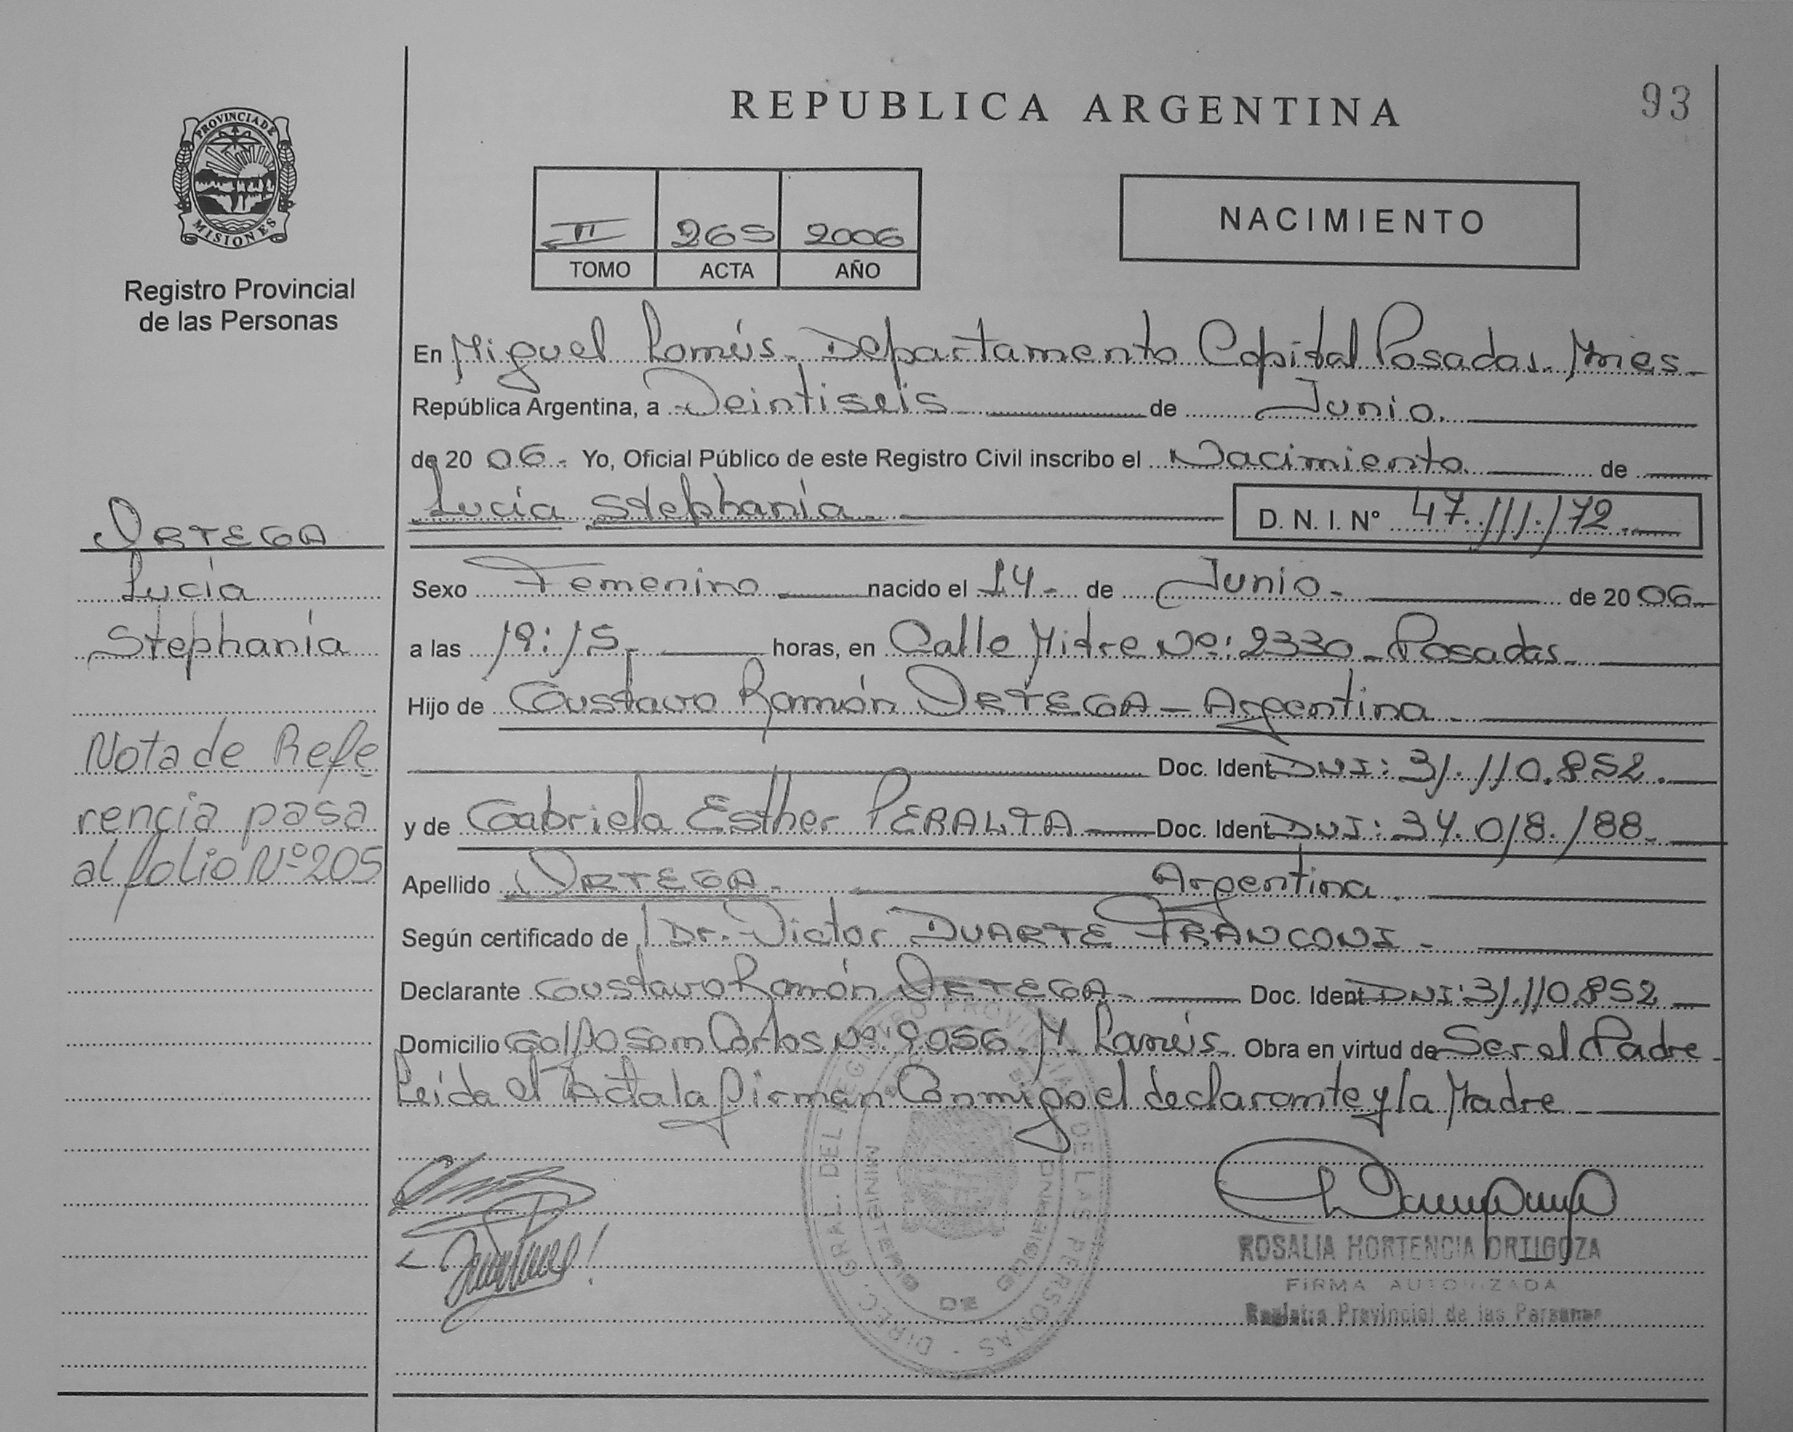 REPUBLICA ARGENTINA
93
PROVINCIA DE
MISIONES
Registro Provincial
de las Personas
II 265 2006
TOMO ACTA AÑO
NACIMIENTO
En Miguel Lanús - Departamento Capital Posadas. Mnes -
República Argentina, a Veintiseis de Junio.
de 2006 - Yo, Oficial Público de este Registro Civil inscribo el Nacimiento de
Lucía Stephanía - D. N. I. Nº 47.111.172 -
ORTEGA
Lucía
Stephanía
Sexo Femenino nacido el 14 - de Junio - de 2006 -
a las 19:15 - horas, en Calle Mitre Nº: 2330 - Posadas -
Hijo de Gustavo Ramón ORTEGA - Argentina
Doc. Ident DNI: 31.110.852.
y de Gabriela Esther PERALTA Doc. Ident DNI: 34.018.188 -
Apellido ORTEGA - Argentina
Según certificado de Dr. Victor DUARTE FRANCONI -
Declarante Gustavo Ramón ORTEGA - Doc. Ident DNI: 31.110.852
Domicilio Galpo San Carlos Nº: 9056 M. Lanús - Obra en virtud de Ser el Padre -
Leida el Acta la firman Conmigo el declarante y la Madre
Nota de Refe
rencia pasa
al folio Nº 205
DIREC. GRAL. DEL REGISTRO PROVINCIAL DE LAS PERSONAS
MINISTERIO DE GOBIERNO
ROSALIA HORTENCIA ORTIGOZA
FIRMA AUTORIZADA
Registro Provincial de las Personas